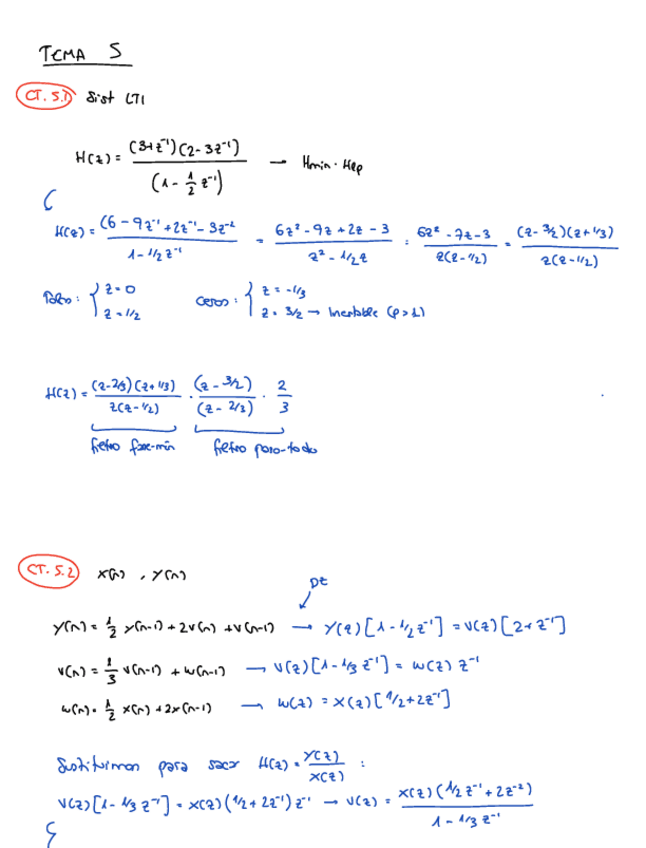 TEMA 5
CT. 5.1 Sist LTI
H(z) = (3+z⁻¹)(2-3z⁻¹) / (1 - 1/2 z⁻¹) → Hmin · Hap
H(z) = (6 - 9z⁻¹ + 2z⁻¹ - 3z⁻² / 1 - 1/2 z⁻¹ = 6z² - 9z + 2z - 3 / z² - 1/2 z = 6z² - 7z - 3 / z(z - 1/2) = (z - 3/2)(z + 1/3) / z(z - 1/2)
Polos: { z = 0 z = 1/2 Ceros: { z = -1/3 z = 3/2 → Inestable (ρ > 1)
H(z) = (z - 2/3)(z + 1/3) / z(z - 1/2) · (z - 3/2) / (z - 2/3) · 2/3
filtro fase-min filtro paso-todo
CT. 5.2 x(n), y(n)
DZ
y(n) = 1/2 y(n-1) + 2v(n) + v(n-1) → Y(z)[1 - 1/2 z⁻¹] = V(z)[2 + z⁻¹]
v(n) = 1/3 v(n-1) + w(n-1) → V(z)[1 - 1/3 z⁻¹] = W(z) z⁻¹
w(n) = 1/2 x(n) + 2x(n-1) → W(z) = X(z)[1/2 + 2z⁻¹]
Sustituimos para sacar H(z) = Y(z) / X(z) :
V(z)[1 - 1/3 z⁻¹] = X(z)(1/2 + 2z⁻¹) z⁻¹ → V(z) = X(z)(1/2 z⁻¹ + 2z⁻²) / 1 - 1/3 z⁻¹